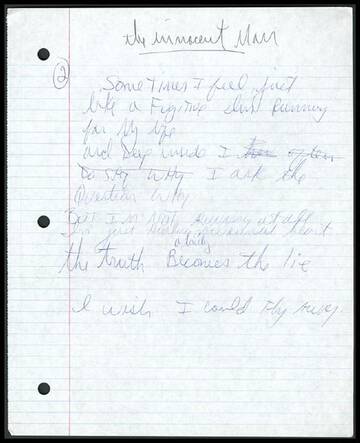 the innocent Man
2
Some Times I feel just
like a Fugitive I'm Running
for My life
and Deep inside I often
Do Stop Why I ask the
Question Why
But I'm Not Running at all
I'm just
a lonely
the truth Becomes the lie
I wish I could Fly away